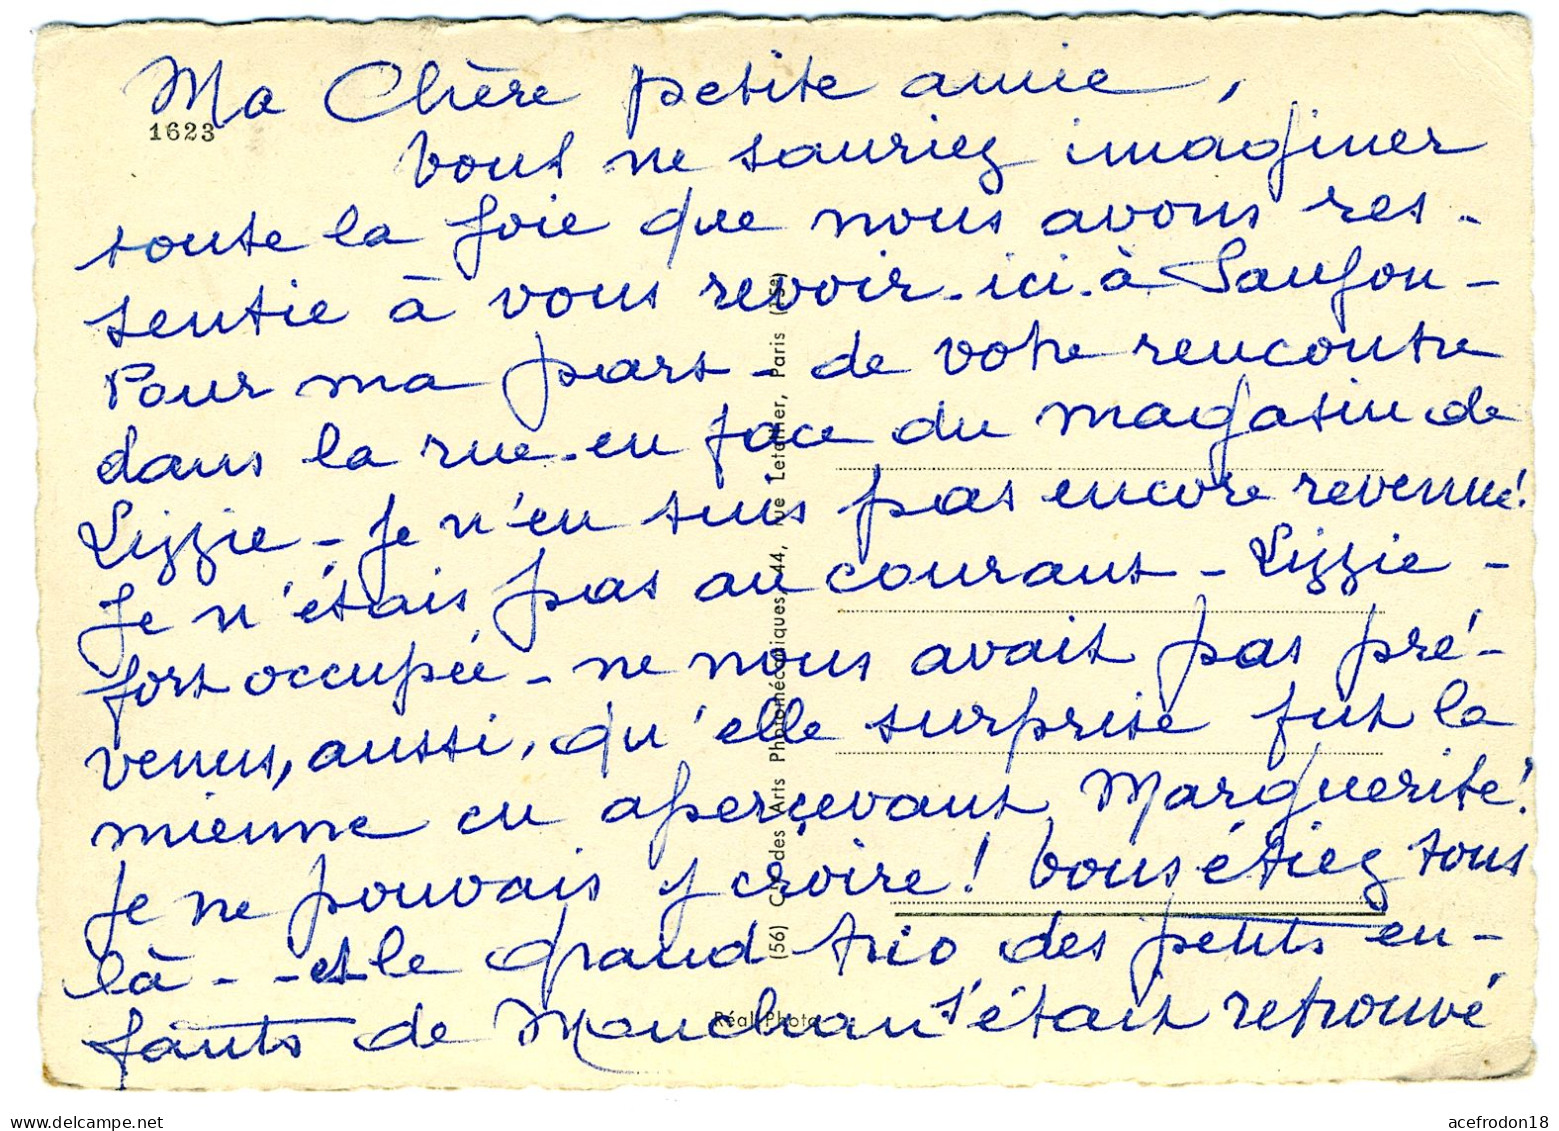 Ma Chère petite amie,
1623
Vous ne sauriez imaginer
toute la joie que nous avons res-
sentie à vous revoir. ici. à Saujon -
Pour ma part - de votre rencontre
dans la rue. en face du magasin de
Lizzie - Je n'en suis pas encore revenue!
Je n'étais pas au courant - Lizzie -
fort occupée - ne nous avait pas pré-
venus, aussi, qu'elle surprise fut la
mienne en aperçevant Marguerite!
Je ne pouvais y croire! Vous étiez tous
là - - et le grand trio des petits en-
fants de s'était retrouvé
(56) Cardes Arts Photomécaniques, 44, rue Letellier, Paris (15e)
Réal-Photo
acefrodon18